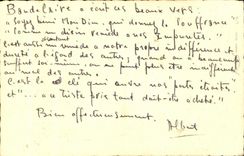 Baudelaire a écrit ces beaux vers :
"Soyez béni Mon Dieu, qui donnez la Souffrance
"comme un divin remède à nos impuretés."
C'est aussi un remède à notre propre indifférence et
dureté à l'égard des autres, quand on a beaucoup
souffert soi-même, on ne peut plus être indifférent
au mal des autres.
C'est la clé qui ouvre nos "puits étroits",
et "... au triste prix tant doit-on acheté."
Bien affectueusement.
Albert